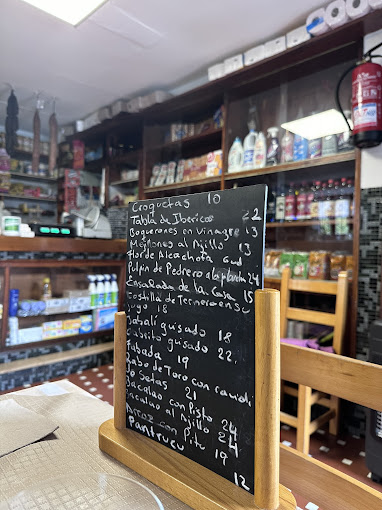 Croquetas 10
Tabla de Ibericos 22
Boquerones en Vinagre 13
Mejillones al Ajillo 13
Flor de Alcachofa 6ud
Pulpin de Pedrero a la plancha 24
Ensalada de la Casa 15
Costilla de Ternera en su
Jugo 18
Jabali guisado 18
Cabrito guisado 22
Fabada 19
Rabo de Toro con
de Setas 21
Bacalao con Pisto 24
Bacalao al Ajillo 24
Arroz con Pitu 19
Pantrucu 12